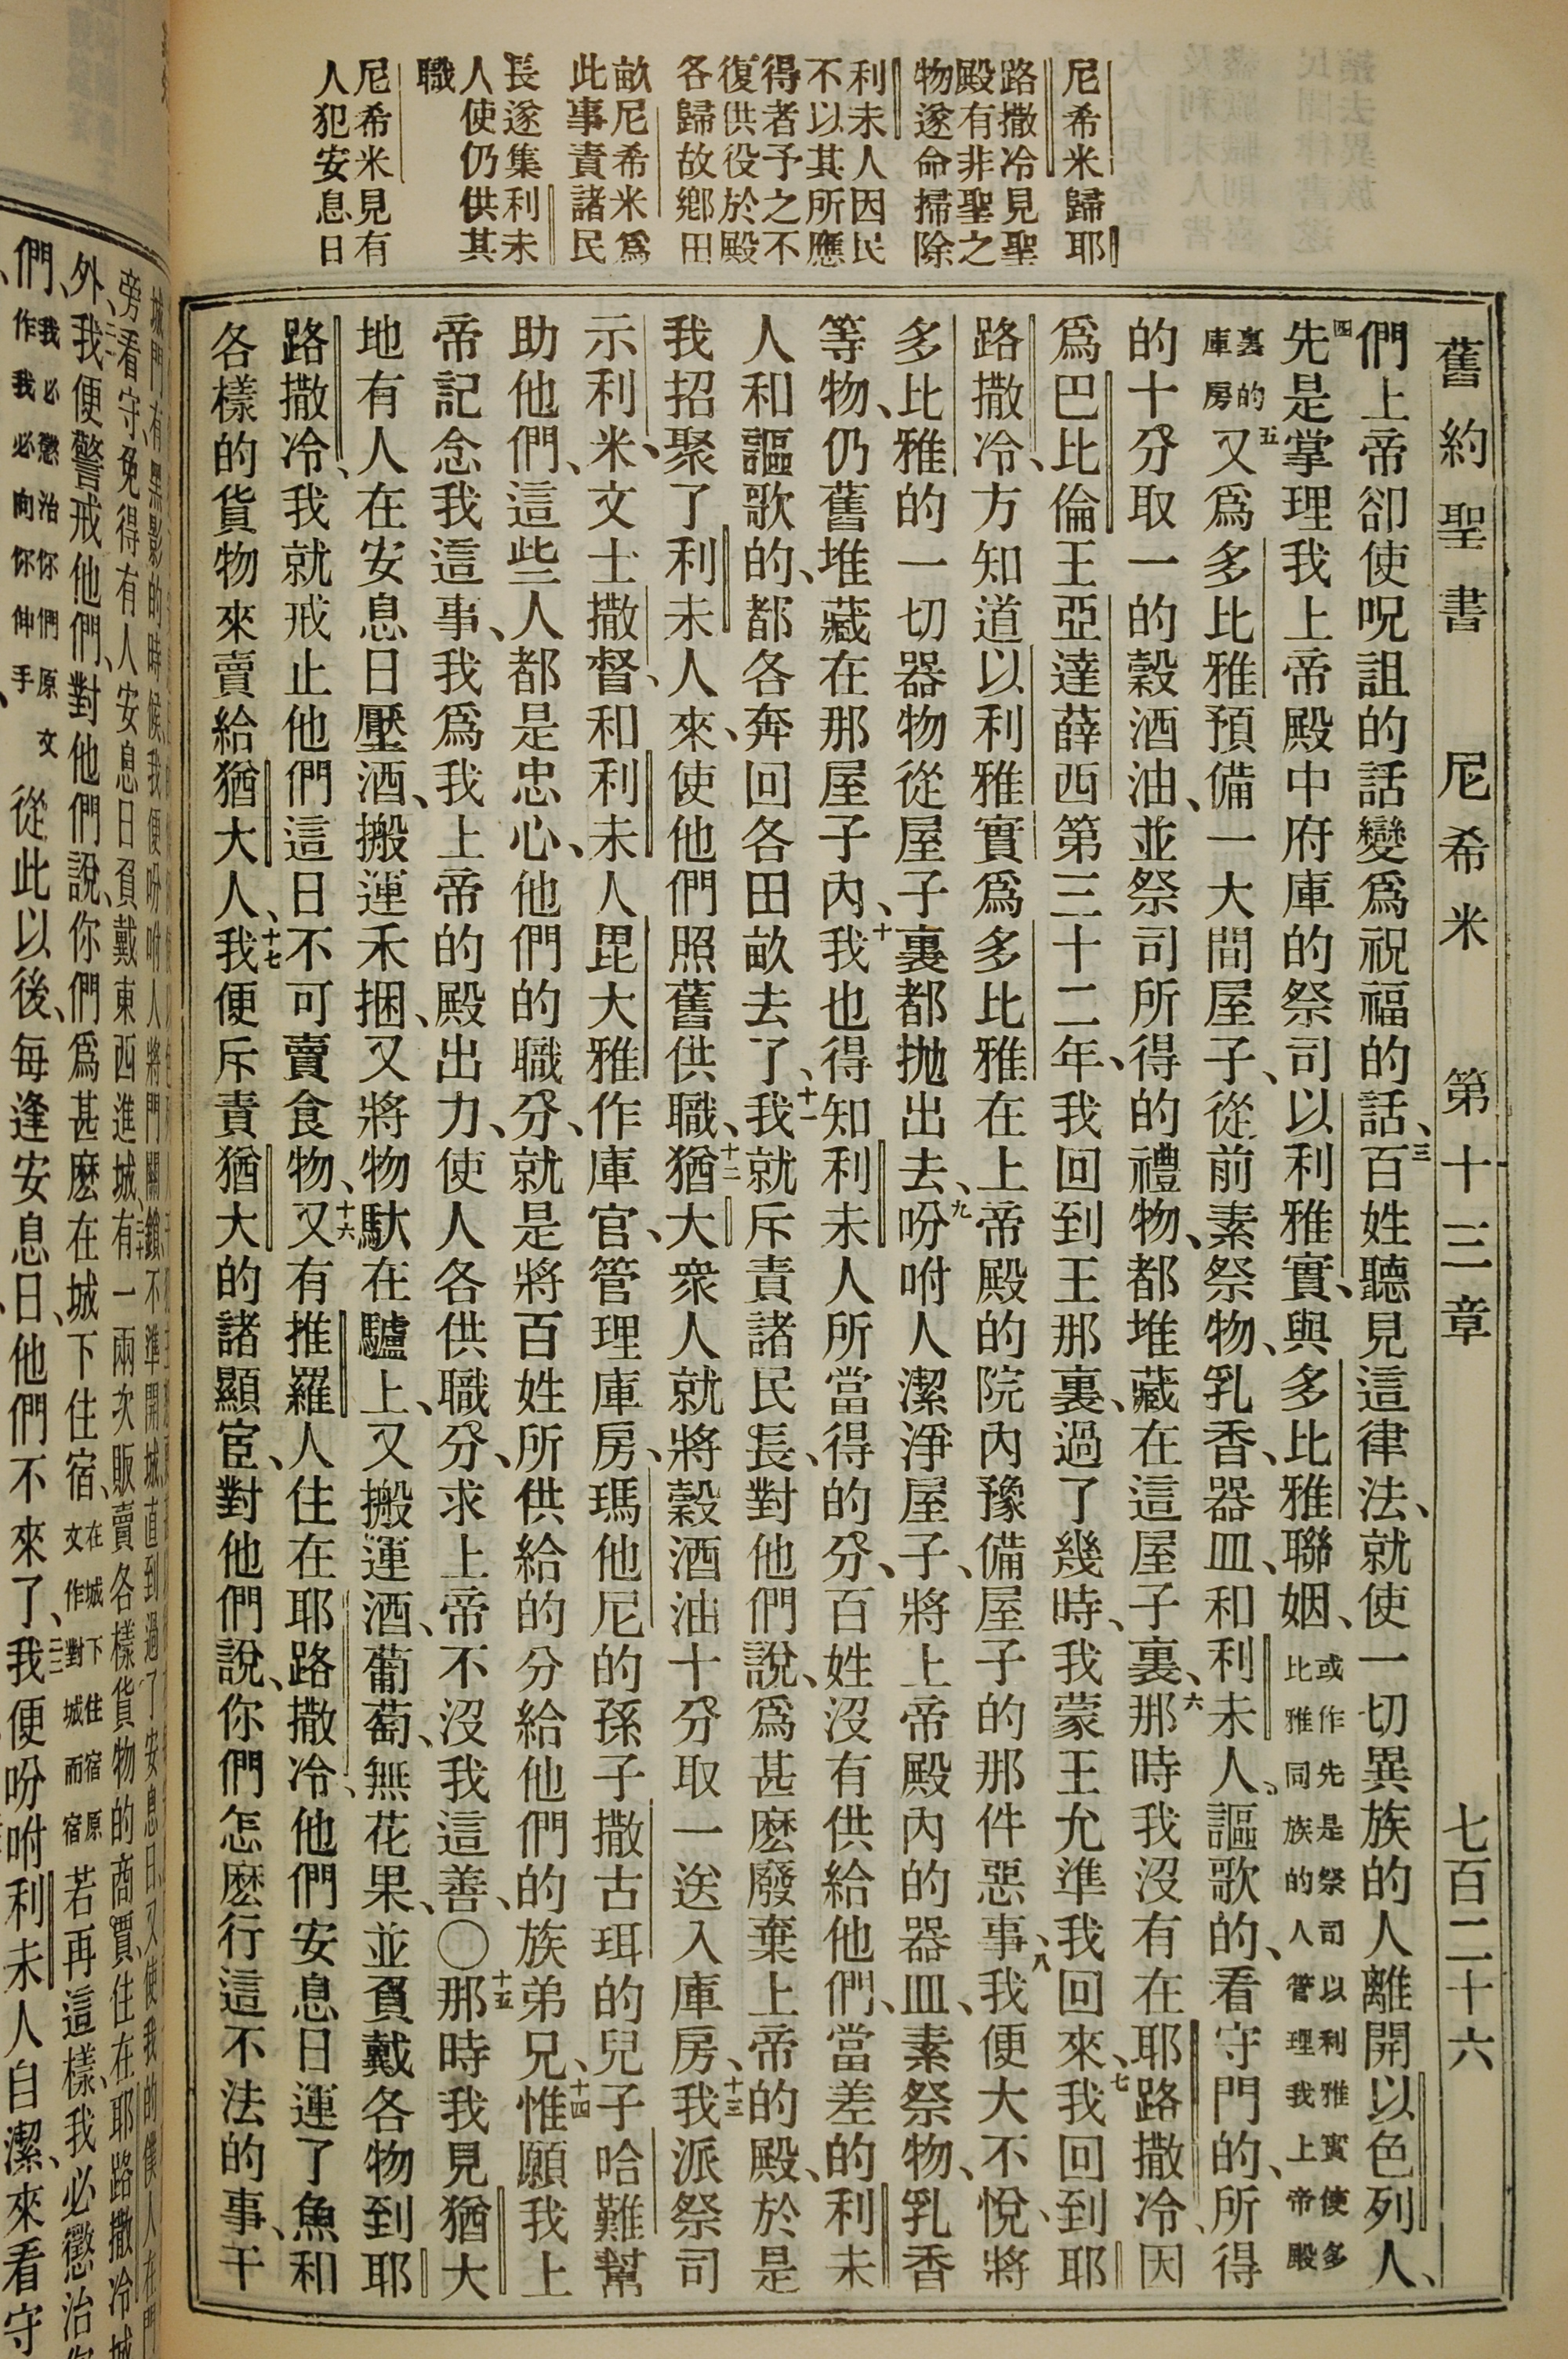 舊約聖書 尼希米 第十三章 七百二十六
尼希米歸耶
路撒冷見聖
殿有非聖之
物遂命掃除
利未人因民
不以其所應
得者予之不
復供役於殿
各歸故鄉田
畝尼希米爲
此事責諸民
長遂集利未
人使仍供其
職
尼希米見有
人犯安息日
們上帝卻使呪詛的話變爲祝福的話、三百姓聽見這律法、就使一切異族的人離開以色列人、
四先是掌理我上帝殿中府庫的祭司以利雅實、與多比雅聯姻、或作先是祭司以利雅實使多比雅同族的人管理我上帝殿
裏的庫房五又爲多比雅預備一大間屋子、從前素祭物、乳香、器皿、和利未人、謳歌的、看守門的、所得
的十分取一的穀酒油、並祭司所得的禮物、都堆藏在這屋子裏、六那時我沒有在耶路撒冷、因
爲巴比倫王亞達薛西第三十二年、我回到王那裏、過了幾時、我蒙王允準我回來、七我回到耶
路撒冷、方知道以利雅實爲多比雅在上帝殿的院內豫備屋子的那件惡事、八我便大不悅、將
多比雅的一切器物從屋子裏都拋出去、九吩咐人潔淨屋子、將上帝殿內的器皿、素祭物、乳香
等物、仍舊堆藏在那屋子內、十我也得知利未人所當得的分、百姓沒有供給他們、當差的利未
人和謳歌的、都各奔回各田畝去了、十一我就斥責諸民長、對他們說、爲甚麽廢棄上帝的殿、於是
我招聚了利未人來、使他們照舊供職、十二猶大衆人就將穀酒油十分取一送入庫房、十三我派祭司
示利米、文士撒督、和利未人毘大雅作庫官、管理庫房、瑪他尼的孫子撒古珥的兒子哈難幫
助他們、這些人都是忠心、他們的職分、就是將百姓所供給的分給他們的族弟兄、十四惟願我上
帝記念我這事、我爲我上帝的殿出力、使人各供職分、求上帝不沒我這善、〇十五那時我見猶大
地有人在安息日壓酒、搬運禾捆、又將物馱在驢上、又搬運酒、葡萄、無花果、並負戴各物到耶
路撒冷、我就戒止他們這日不可賣食物、十六又有推羅人住在耶路撒冷、他們安息日運了魚和
各樣的貨物來賣給猶大人、十七我便斥責猶大的諸顯宦、對他們說、你們怎麽行這不法的事、干
城門有黑影的時候我便吩咐人將門關鎖不準開城直到過了安息日又使我的僕人在門
旁看守、免得有人安息日負戴東西進城、有一兩次販賣各樣貨物的商賈、住在耶路撒冷城
外、我便警戒他們、對他們說、你們爲甚麽在城下住宿、在城下住宿原文作對城而宿若再這樣、我必懲治
們、我必懲治你們原文作我必向你伸手從此以後、每逢安息日、他們不來了、我便吩咐利未人自潔、來看守